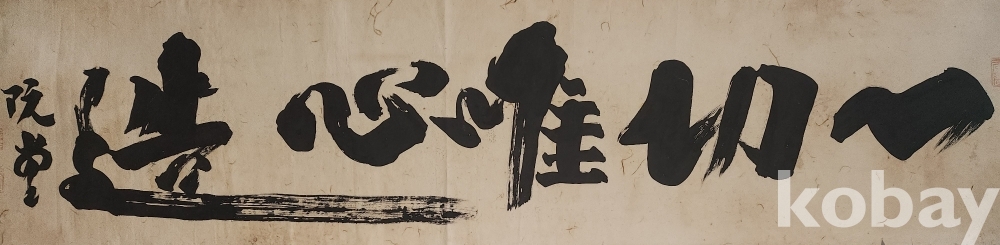 一切唯心造
阮堂
kobay